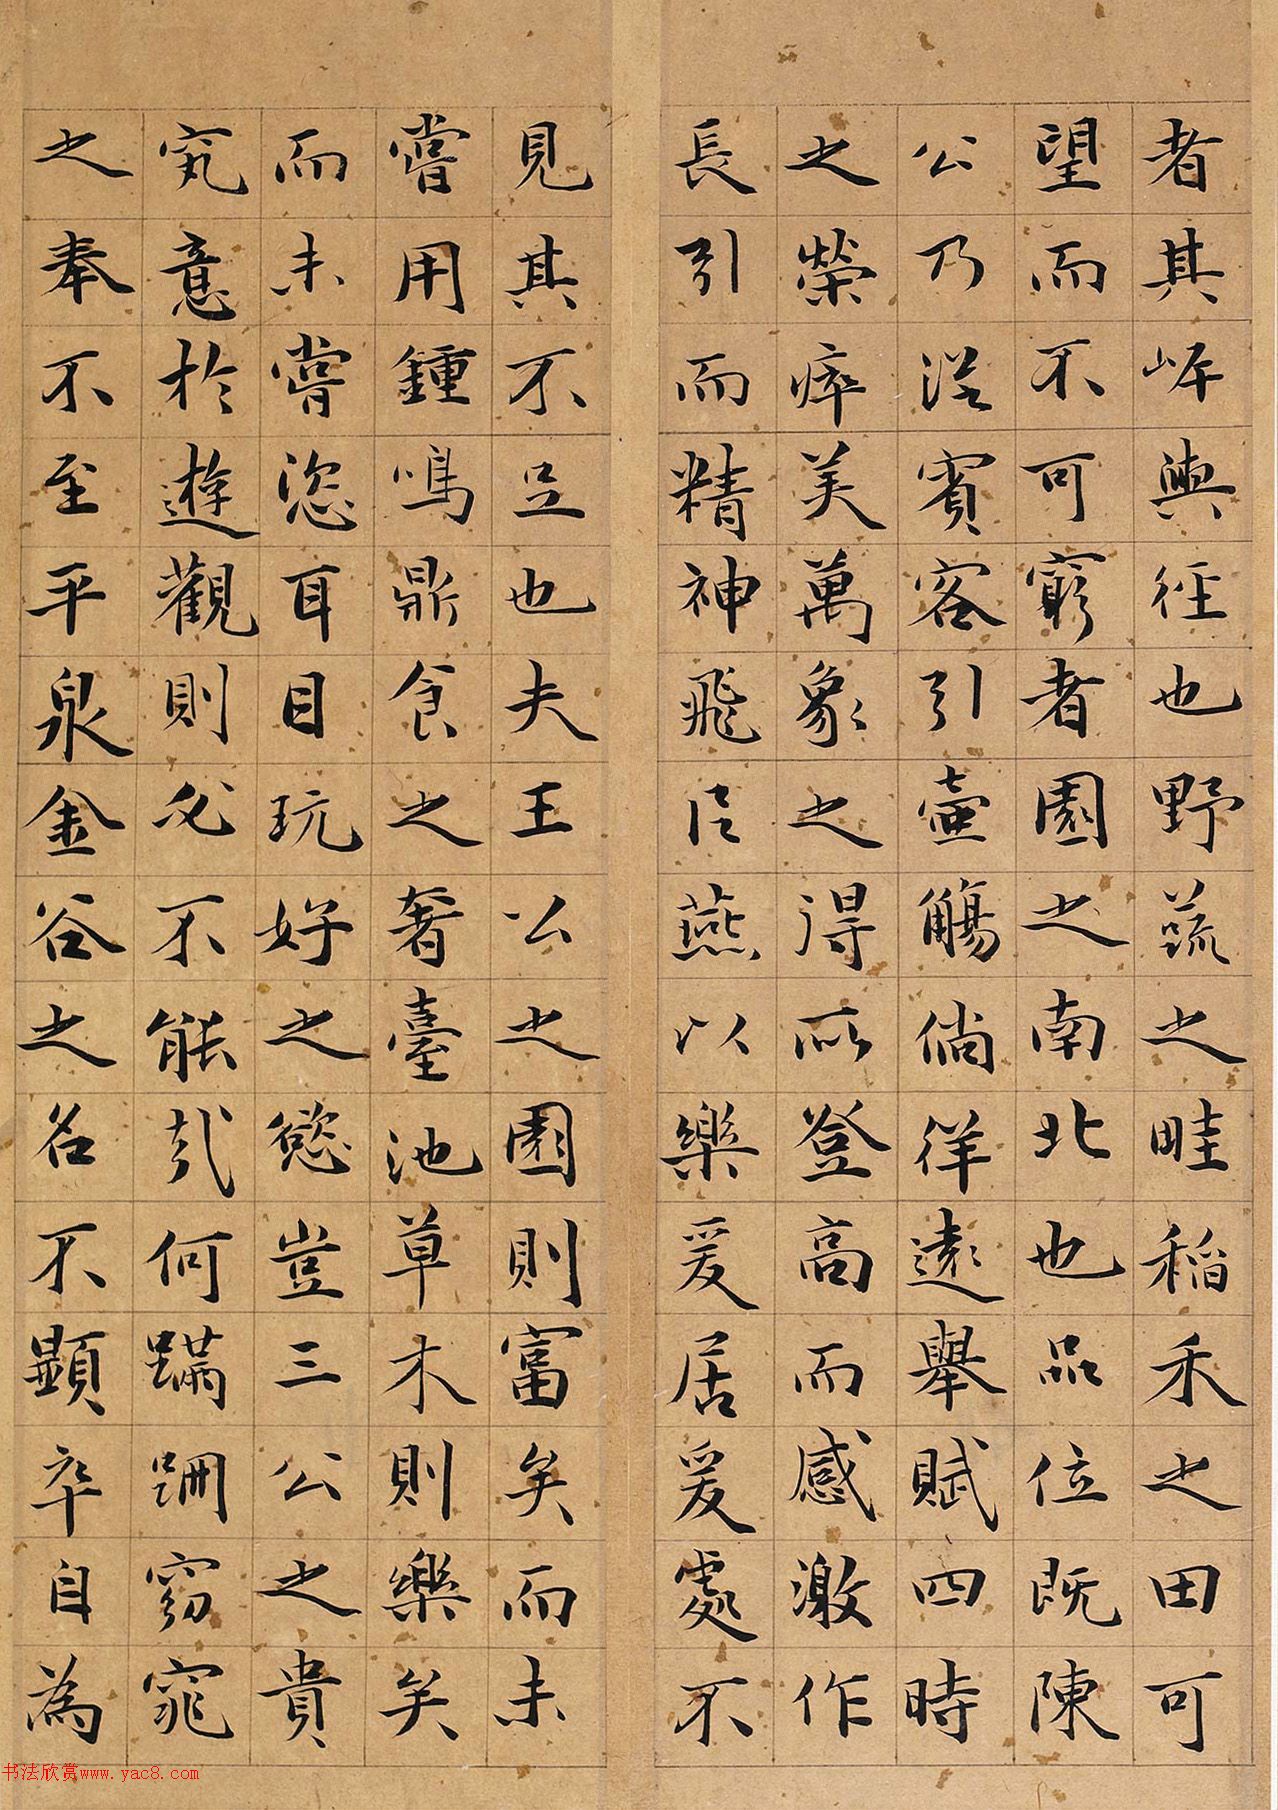 者其岠與徑也野蔬之畦稻禾之田可
望而不可窮者園之南北也品位既陳
公乃從賓客引壺觴倘徉遠舉賦四時
之榮瘁美萬象之得所登高而感激作
長引而精神飛以燕以樂爰居爰處不
見其不足也夫王公之園則富矣而未
嘗用鍾鳴鼎食之奢臺池草木則樂矣
而未嘗恣耳目玩好之慾豈三公之貴
究意於遊觀則必不能哉何蹣跚窈窕
之奉不至平泉金谷之名不顯卒自為
书法欣赏www.yac8.com